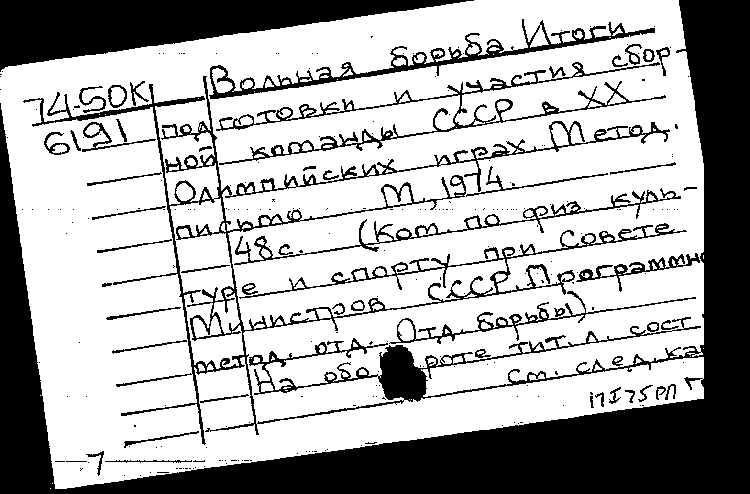 74-50К Вольная борьба. Итоги
6191 подготовки и участия сбор-
ной команды СССР в XX
Олимпийских играх. Метод.
письмо. М., 1974.
48с. (Ком. по физ куль-
туре и спорту при Совете
Министров СССР. Программно
метод. отд. Отд. борьбы).
На обороте тит. л. сост.
См. след. кар
7